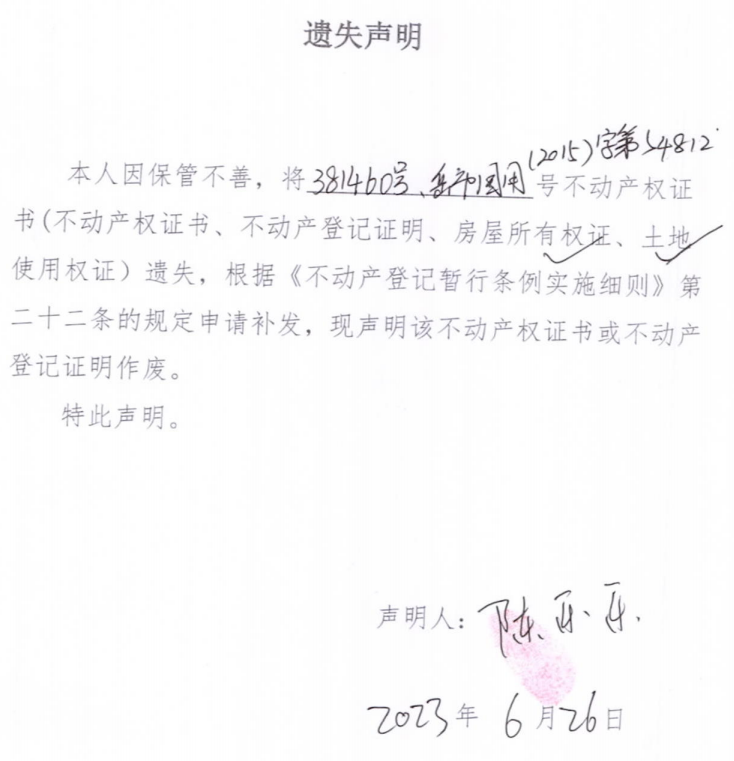 遗失声明
本人因保管不善，将381460号、晋市国用(2015)字第54812号不动产权证
书(不动产权证书、不动产登记证明、房屋所有权证、土地
使用权证）遗失，根据《不动产登记暂行条例实施细则》第
二十二条的规定申请补发，现声明该不动产权证书或不动产
登记证明作废。
特此声明。
声明人：陈乐乐
2023年6月26日